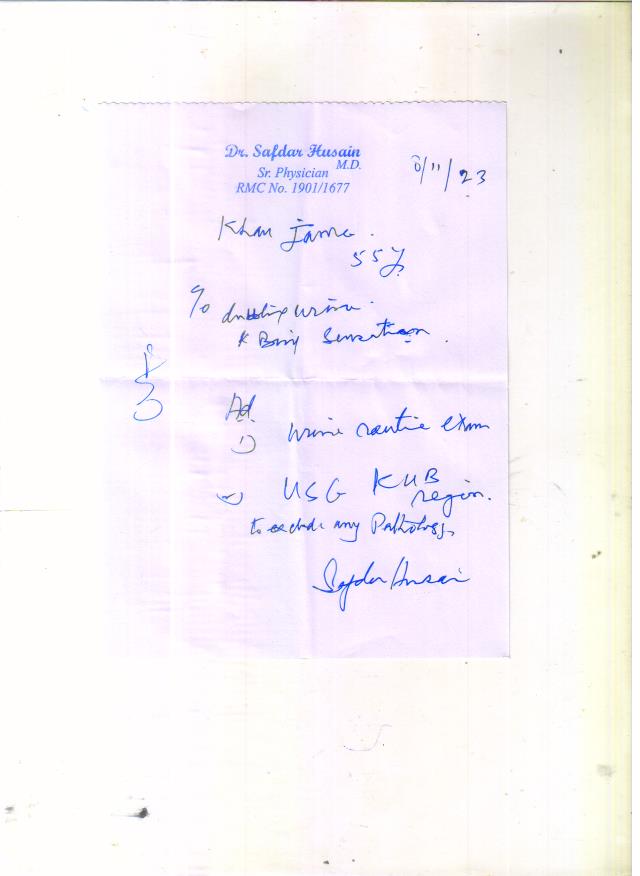 Dr. Safdar Husain
M.D.
Sr. Physician
RMC No. 1901/1677
/11/23
Khan
55y
C/o urine.
Sensation
Ad
1) urine routine exam
2) USG KUB
region.
to exclude any Pathology
Safdar Husain